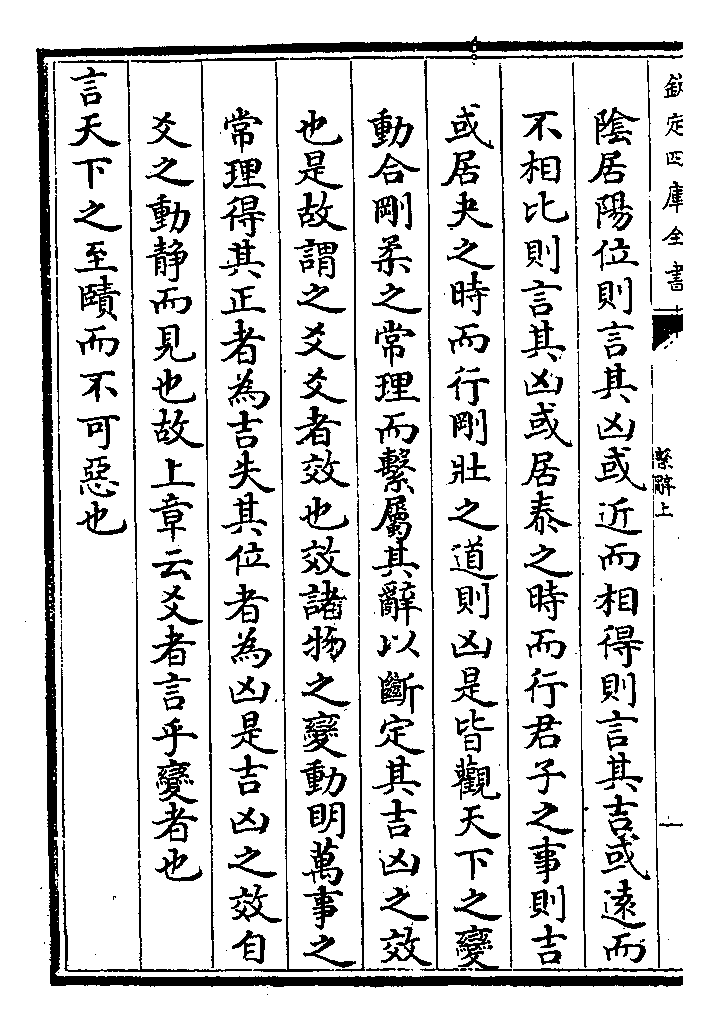 欽定四庫全書
繫辭上
陰居陽位則言其凶或近而相得則言其吉或遠而
不相比則言其凶或居泰之時而行君子之事則吉
或居夬之時而行剛壯之道則凶是皆觀天下之變
動合剛柔之常理而繫屬其辭以斷定其吉凶之效
也是故謂之爻爻者效也效諸物之變動明萬事之
常理得其正者為吉失其位者為凶是吉凶之效自
爻之動靜而見也故上章云爻者言乎變者也
言天下之至賾而不可惡也